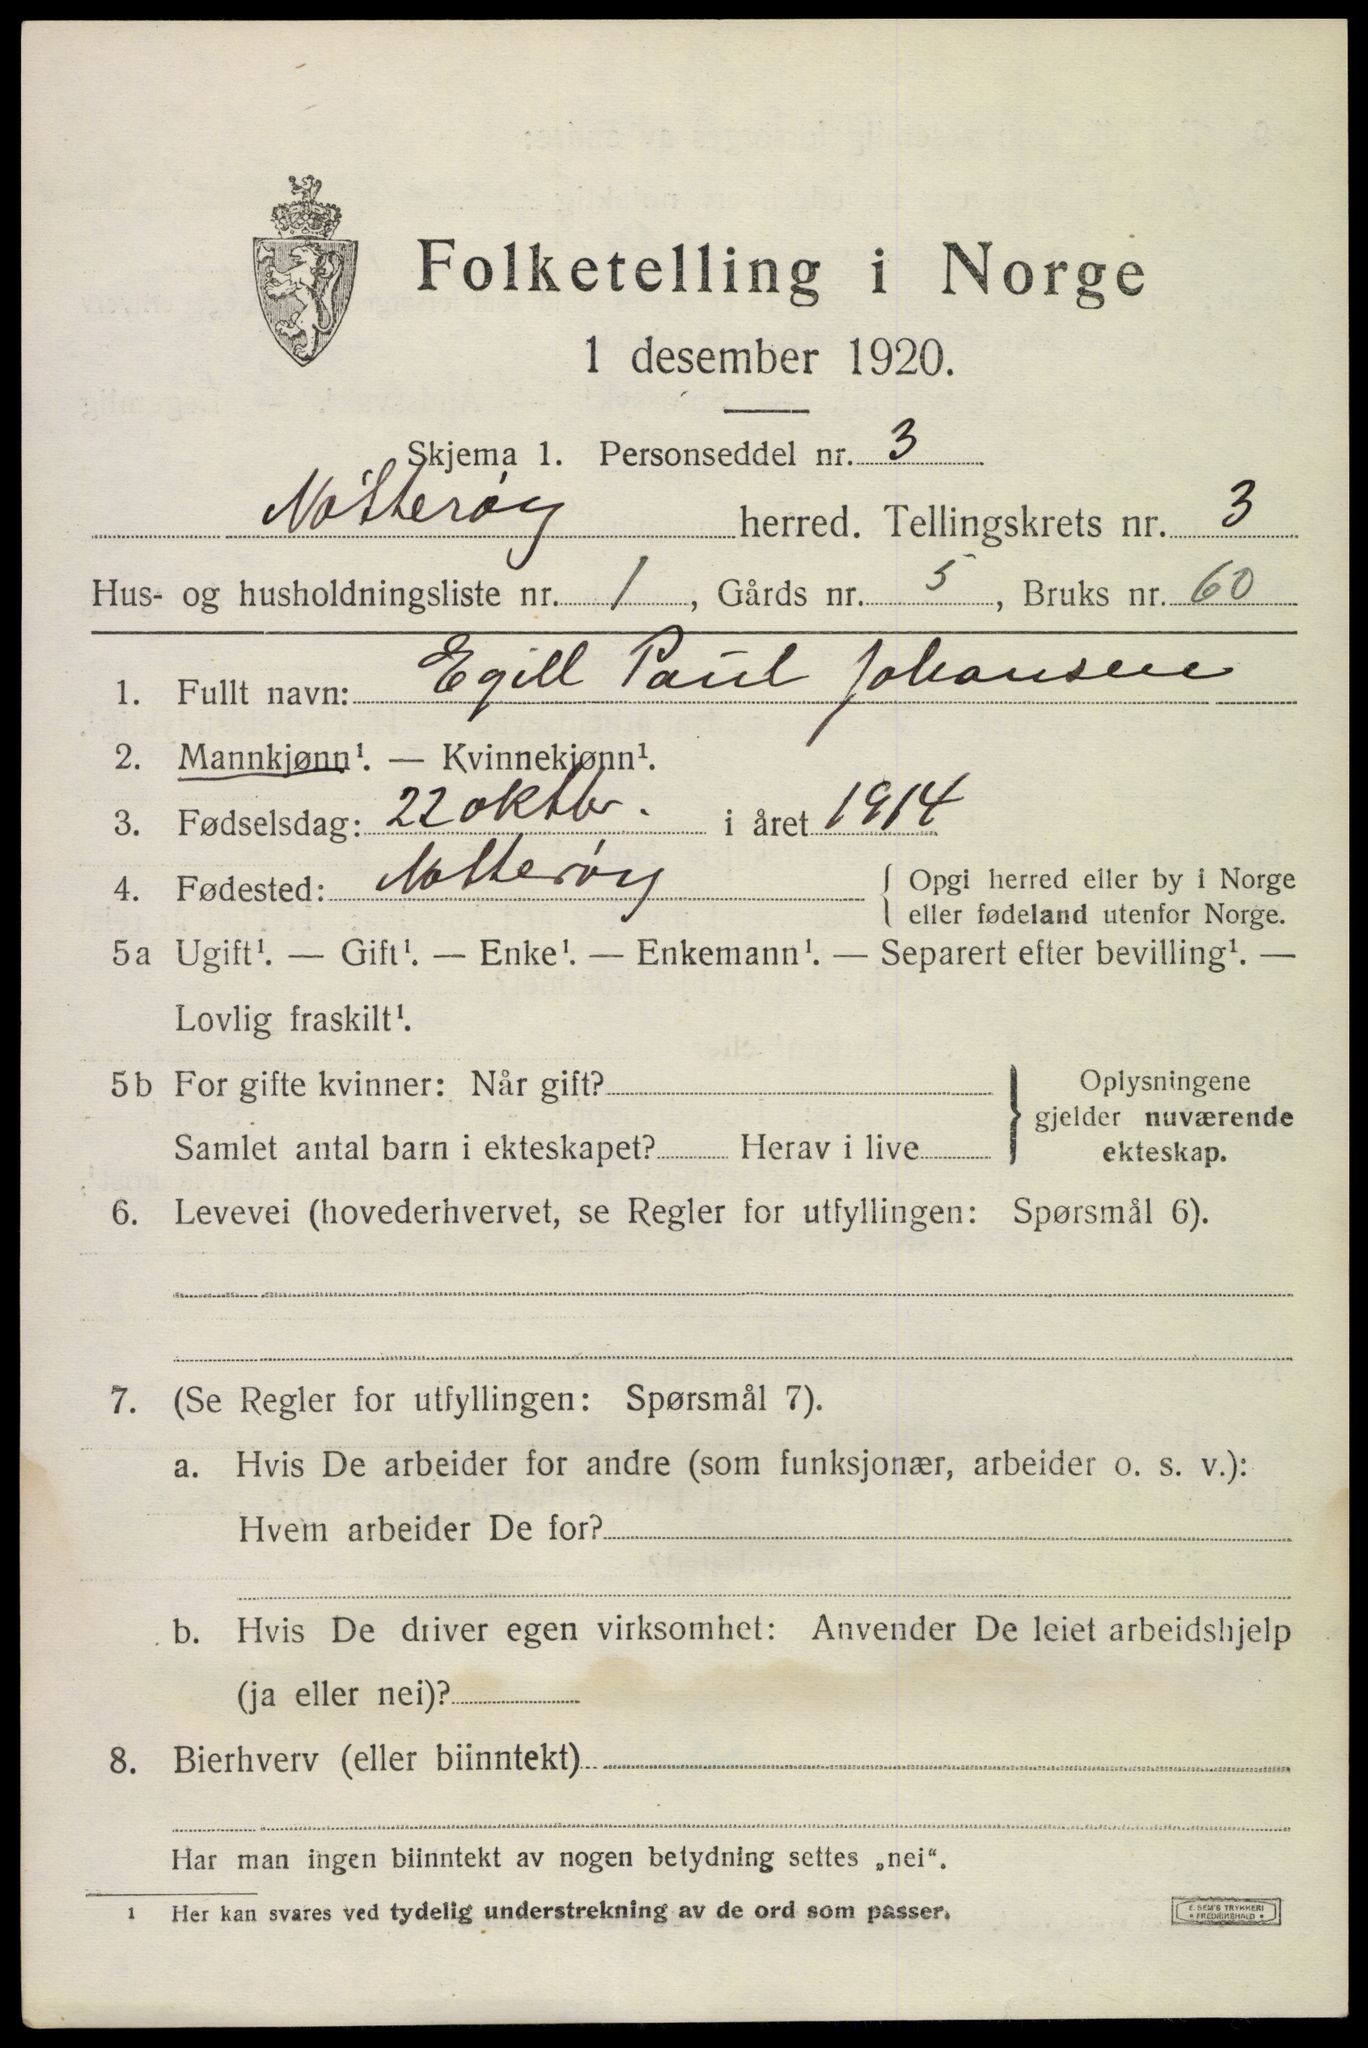 Folketelling i Norge
1 desember 1920.
Skjema 1. Personseddel nr. 3
Nøtterøy herred. Tellingskrets nr. 3
Hus- og husholdningsliste nr. 1, Gårds nr. 5, Bruks nr. 60
1. Fullt navn: Egill Paul Johansen
2. Mannkjønn¹. — Kvinnekjønn¹.
3. Fødselsdag: 22 oktbr. i året 1914
4. Fødested: Nøtterøy { Opgi herred eller by i Norge
eller fødeland utenfor Norge.
5a Ugift¹. — Gift¹. — Enke¹. — Enkemann¹. — Separert efter bevilling¹. —
Lovlig fraskilt¹.
5b For gifte kvinner: Når gift? } Oplysningene
gjelder nuværende
Samlet antal barn i ekteskapet? Herav i live ekteskap.
6. Levevei (hovederhvervet, se Regler for utfyllingen: Spørsmål 6).
7. (Se Regler for utfyllingen: Spørsmål 7).
a. Hvis De arbeider for andre (som funksjonær, arbeider o. s. v.):
Hvem arbeider De for?
b. Hvis De driver egen virksomhet: Anvender De leiet arbeidshjelp
(ja eller nei)?
8. Bierhverv (eller biinntekt)
Har man ingen biinntekt av nogen betydning settes „nei“.
1 Her kan svares ved tydelig understrekning av de ord som passer.
E. SEM'S TRYKKERI
• FREDRIKSHALD •